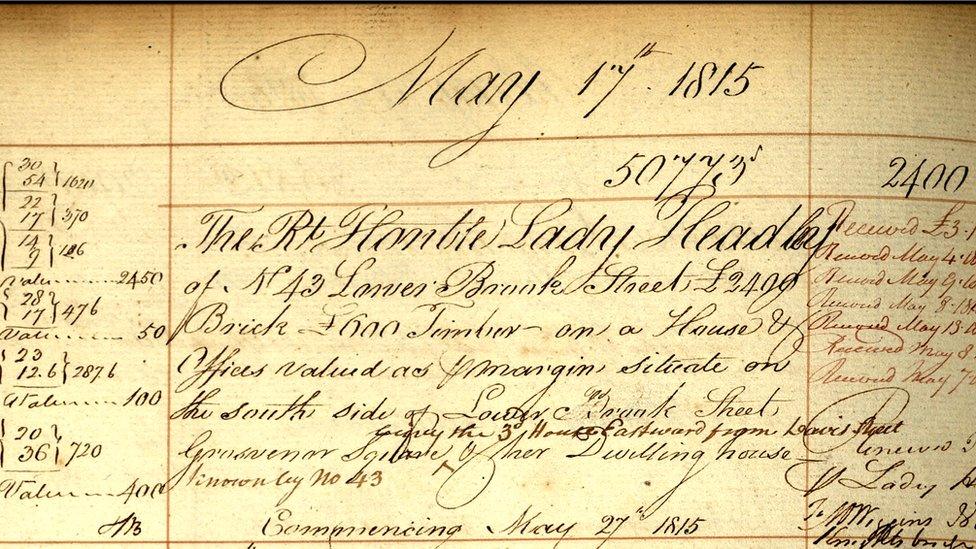 May 17th 1815
50773 2400
30
54 } 1620
22
17 } 370
14
9 } 126
Value 2450
28
17 } 476
Value 50
23
12.6 } 287.6
Value 100
20
36 } 720
Value 400
The Rt. Honble Lady Headley
of No 43 Lower Brook Street £2400
Brick £600 Timber on a House &
Offices valued as p margin situate on
the south side of Lower Brook Street
being the 3d House Eastward from Davis Street
Grosvenor Square & her Dwelling house
known by No 43
Commencing May 27th 1815
Received £3.
Renewd May 4.
Renewd May 9.
Renewd May 8.
Renewd May 13.
Received May 8
Received May 7
Renewed 3
p Lady
Wiggins 38